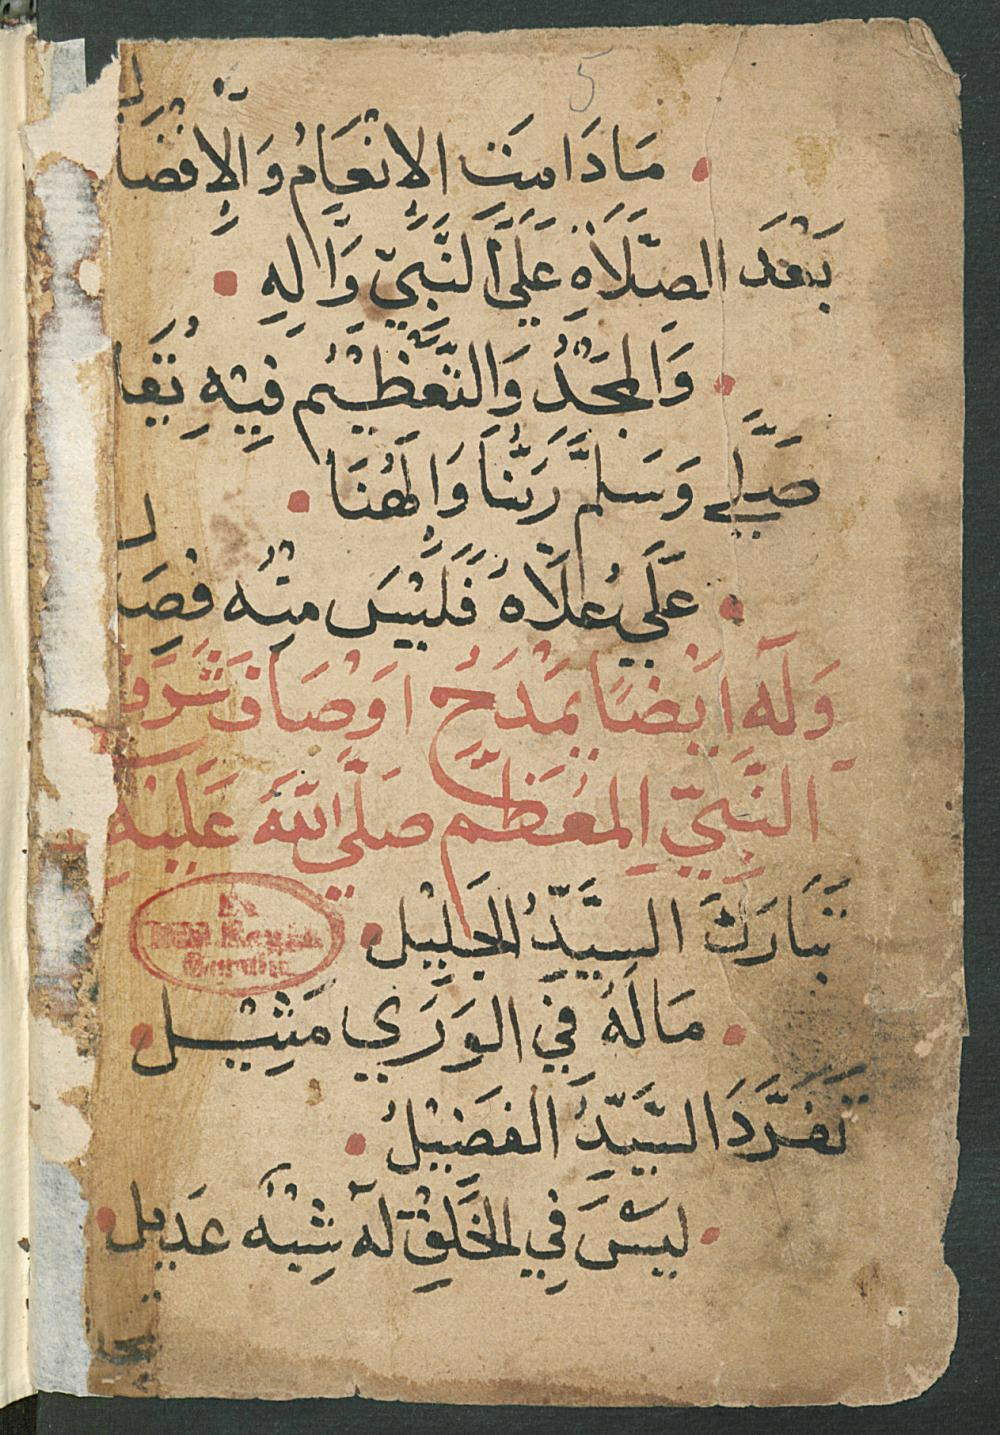 5
• مَا دَامَتِ الإِنْعَامُ وَالإِفْضَا ل
بَعْدَ الصَّلَاةِ عَلَى النَّبِيّ وَالِهِ •
• وَالمَجْدُ وَالتَّعْظِيْمُ فِيْهِ يُقَا ل
صَلَّي وَسَلَّمَ رَبُّنَا وَالهُنَا •
• عَلَي عُلَاهُ فَلَيْسَ مِنْهُ فِصَا ل
وَلَه اَيْضًا يَمْدَحُ اَوْصَافَ شَرَفِ
النَّبِيّ المُعَظَّم صَلَّي اللهُ عَلَيْهِ
تَبَارَكَ السَيِّدُ الجَلِيْل •
• مَا لَهُ فِي الوَرَي مَثِيْل •
تَفَرَّدَ السَيِّدُ الفَضِيْلُ •
• لَيْسَ فِي الخَلْقِ لَهُ شِبْهُ عَدِيل •